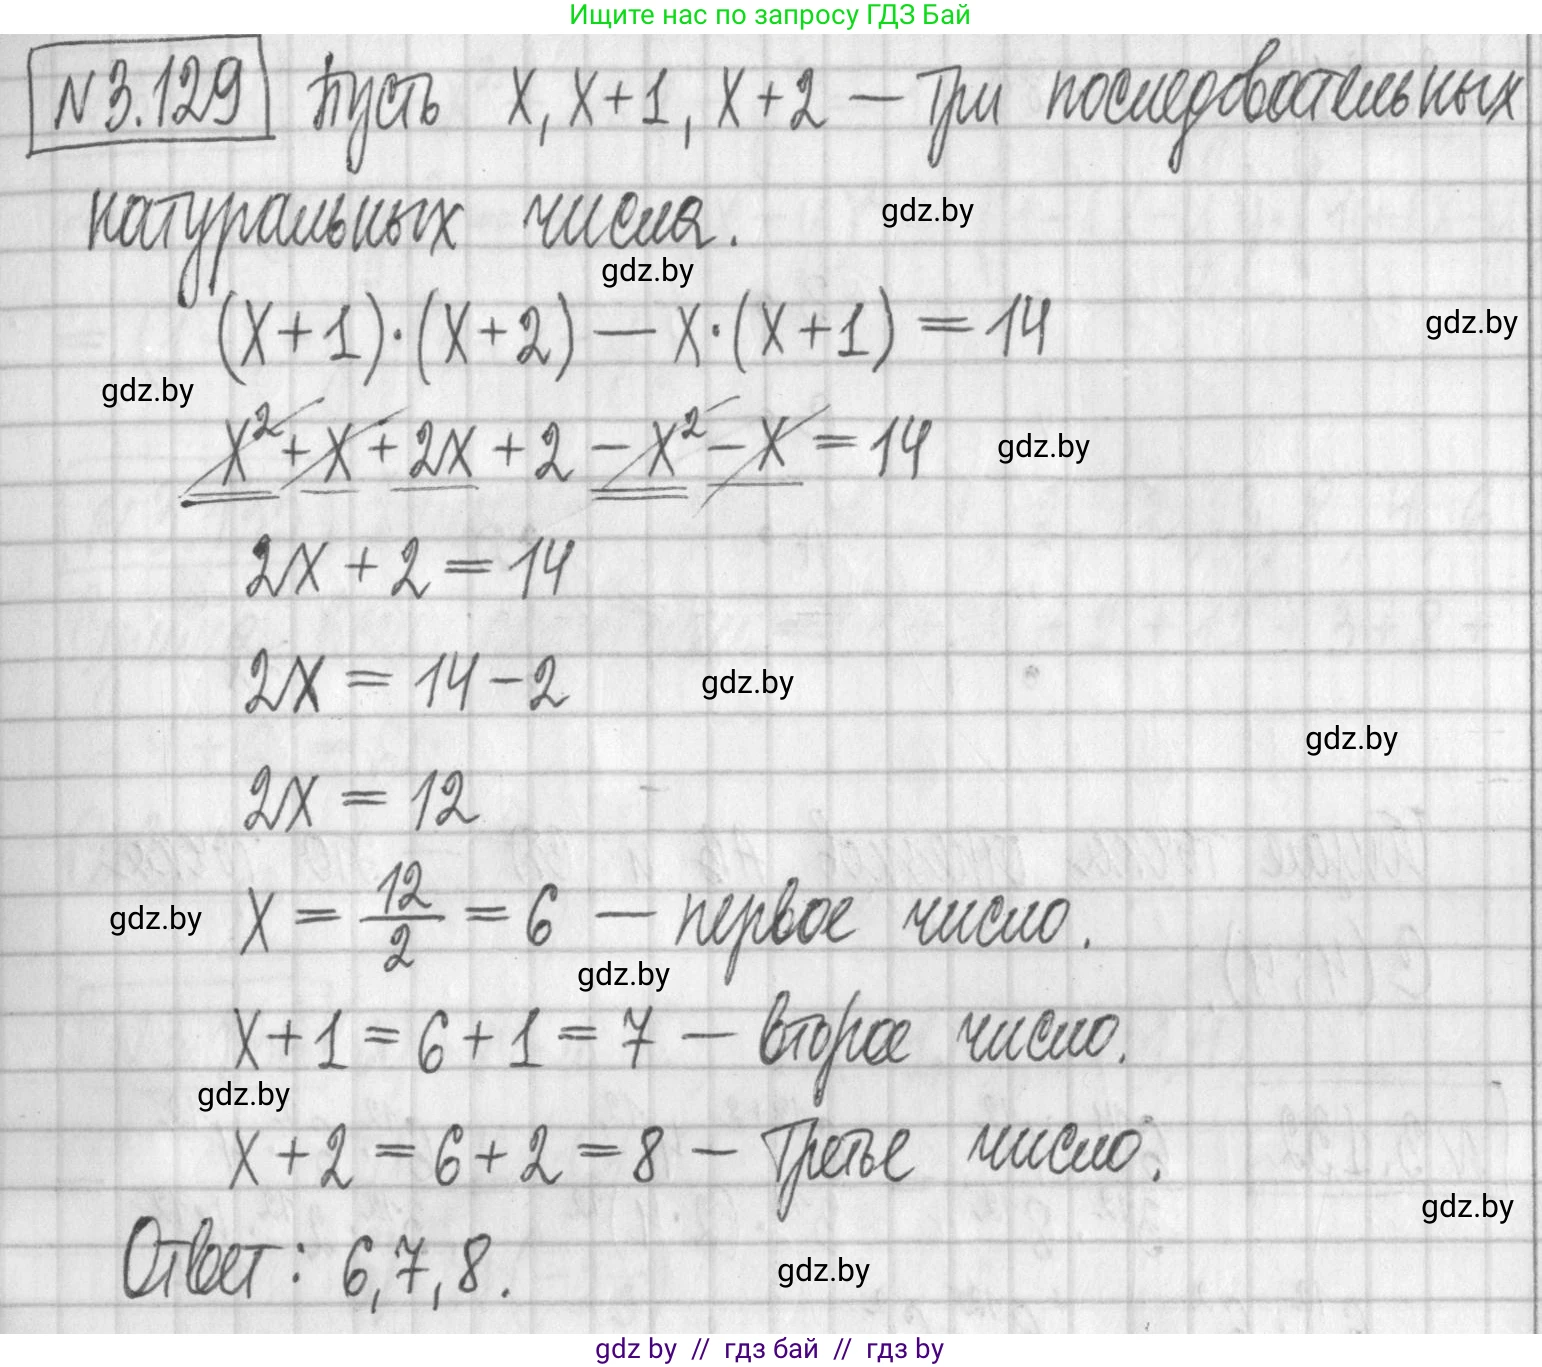 Ищите нас по запросу ГДЗ Бай
N3.129 Пусть x, x+1, x+2 — три последовательных
натуральных числа.
gdz.by
gdz.by
(x+1)·(x+2) — x·(x+1) = 14
gdz.by
gdz.by
x² + x + 2x + 2 − x² − x = 14
gdz.by
2x + 2 = 14
2x = 14 − 2
gdz.by
gdz.by
2x = 12
x = 12/2 = 6 — первое число.
gdz.by
gdz.by
x+1 = 6+1 = 7 — второе число.
gdz.by
x+2 = 6+2 = 8 — третье число.
gdz.by
Ответ: 6,7,8.
gdz.by
gdz by // гдз бай // гдз by